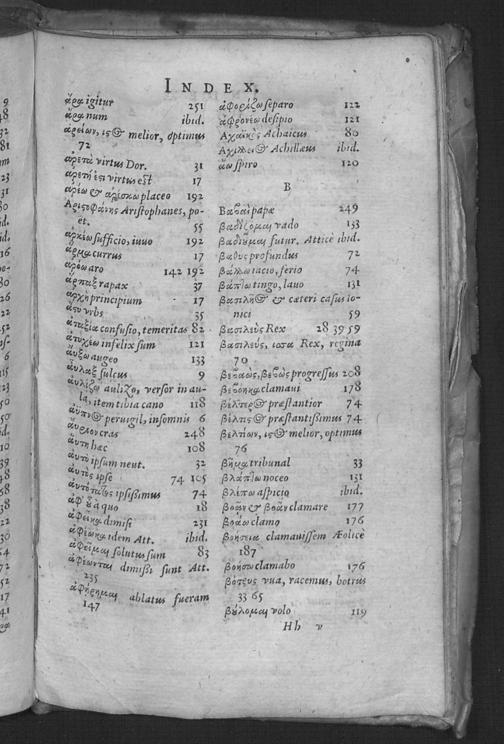 INDEX.
ἄρα igitur 251
ἆρα num ibid.
ἀρείων, ις & melior, optimus
72
ἀρετὰ virtus Dor. 31
ἀρετή ἐστι virtus est 17
ἀρέω & ἀρέσκω placeo 192
Αριστοφάνης Aristophanes, po-
et. 55
ἀρκέω sufficio, iuuo 192
ἅρμα currus 17
ἀρόω aro 142 192
ἅρπαξ rapax 37
ἀρχὴ principium 17
ἄστυ vrbs 35
ἀταξία confusio, temeritas 82
ἀτυχέω infelix sum 121
αὔξω augeo 133
αὖλαξ sulcus 9
αὐλίζω aulizo, versor in au-
la, item tibia cano 118
ἄυπν& peruigil, insomnis 6
αὔριον cras 248
αὐτὴ hæc 108
αὐτὸ ipsum neut. 32
αὐτὸς ipse 74 105
αὐτότατος ipsissimus 74
ἀφ' οὗ à quo 18
ἀφεῖκα dimisi 231
ἀφέωκα idem Att. ibid.
ἀφεῖμαι solutus sum 83
ἀφέωνται dimissi sunt Att.
235
ἀφῄρημαι ablatus fueram
147
ἀφορίζω separo 122
ἀφρονέω desipio 121
Αχαικὸς Achaicus 80
Αχιλλεὺς Achillæus ibid.
ἄω spiro 120
B
Βαβαὶ papæ 249
βαδίζομαι vado 133
βαδιοῦμαι futur. Atticè ibid.
βαθὺς profundus 72
βάλλω iacio, ferio 74
βάπτω tingo, lauo 131
βασιλῆ& & cæteri casus io-
nici 59
βασιλεὺς Rex 28 39 59
βασιλεὺς, ισσα Rex, regina
70
βεβαὼς, βεβὼς progressus 208
βεβόηκα clamaui 178
βέλτερ& præstantior 74
βέλτις& præstantissimus 74
βελτίων, ις & melior, optimus
76
βῆμα tribunal 33
βλάπτω noceo 131
βλέπω aspicio ibid.
βοᾶν & βοᾷν clamare 177
βοάω clamo 176
βοήσεια clamauissem Æolicè
187
βοήσω clamabo 176
βότρυς vua, racemus, botrus
33 65
βούλομαι volo 119
Hh v